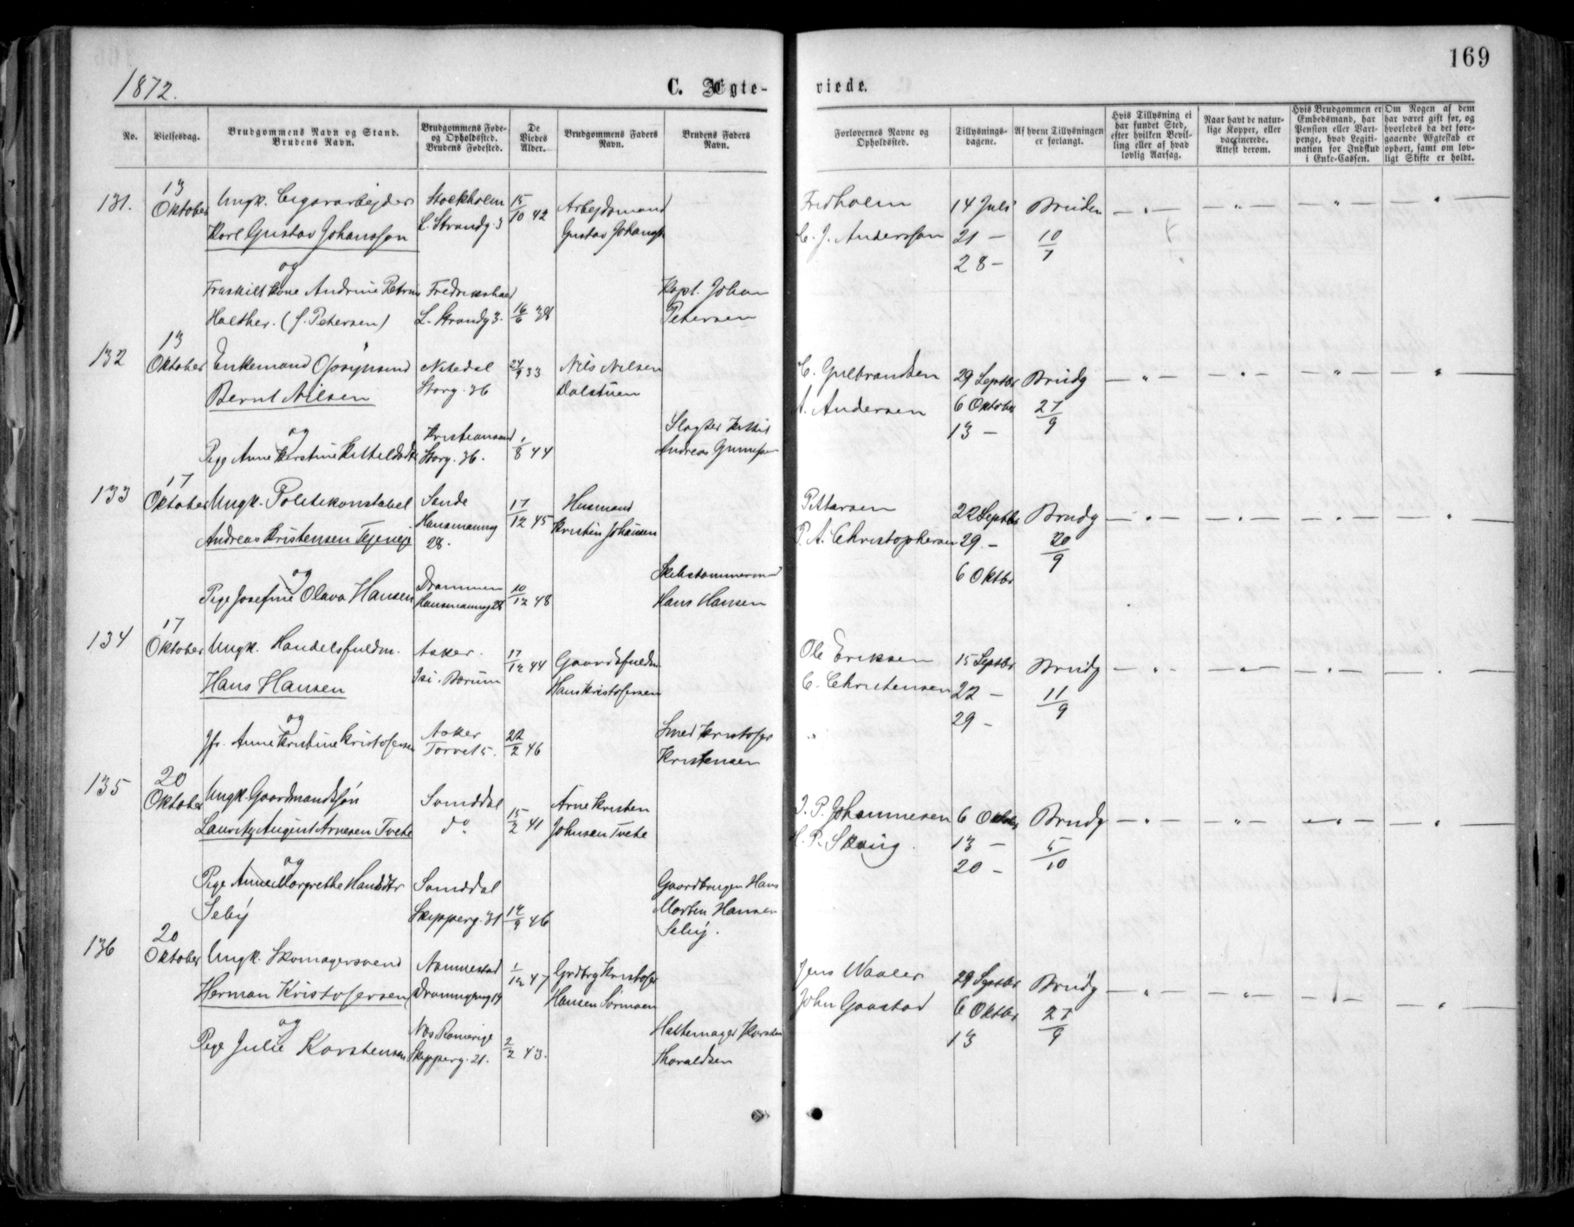 169
1872.
C. Ægte-
viede.
No.
Vielsesdag.
Brudgommens Navn og Stand.
Brudens Navn.
Brudgommens Føde-
og Opholdssted.
Brudens Fødested.
De
Viedes
Alder.
Brudgommens Faders
Navn.
Brudens Faders
Navn.
Forlovernes Navne og
Opholdssted.
Tillysnings-
dagene.
Af hvem Tillysningen
er forlangt.
Hvis Tillysning ei
har fundet Sted,
efter hvilken Bevil-
ling eller af hvad
lovlig Aarsag.
Naar havt de natur-
lige Kopper, eller
vaccinerede.
Attest derom.
Hvis Brudgommen er
Embedsmand, har
Pension eller Vart-
penge, hvad Legiti-
mation for Indskud
i Enke-Cassen.
Om Nogen af dem
har været gift før, og
hvorledes da det fore-
gaaende Ægteskab er
ophørt, samt om lov-
ligt Skifte er holdt.
131.
13
Oktober
Ungk. Cigararbejder
Karl Gustav Johansson
og
Fraskilt Kone Andrine Petrine
Holther. (f. Petersen)
Stockholm
L. Strandg. 3
Fredrikshald
L. Strandg 3.
15/10 42
16/6 38
Arbejdsmand
Gustav
Kapt. Johan
Petersen
Fredholm
C. J. Andersson
14 Juli
21 —
28 —
Bruden
10/7
132
13
Oktober
Enkemand Opsynsmd
Bernt Nilsen
og
Pige Anne Kerstine
Nitedal
Storg. 36
Kristiansand
Storg. 36.
24/9 33
1/8 44
Nils Nilsen
Dalstuen
Andreas
C. Gulbrandsen
A. Andersen
29 Septbr
6 Oktober
13 —
Brudg
27/9
133
17
Oktober
Ungk. Politikonstabel
Andreas Kristensen
og
Pige Josefine Olava Hansen
Sande
Hausmannsg
28.
Drammen
Hausmannsg 28
17/12 45
10/12 48
Husmand
Kristen Johansen
Skibstømmermand
Hans Hansen
Pettersen
P. A. Christophersen
22 Septbr
29. —
6 Oktbr
Brudg
20/9
134
17
Oktober
Ungk. Handelsfuldm.
Hans Hansen
og
Jfr. Anne Kristine Kristofersen
Asker.
Bærum
Asker
Torvet 5.
17/12 44
22/2 46
Gaardsfuldm
Hans Kristofersen
Smed Kristofer
Kristensen
Ole Eriksen
C. Christensen
15 Septbr
22 —
29 —
Brudg
11/9
135
20
Oktober
Ungk. Gaardmandsøn
Lauritz August Arnesen Tvete
og
Pige Anne Margrethe Hansdtr
Seby
Sanddal
do
Sanddal
Skipperg. 31
15/2 41
14/9 46
Arne Kristen
Johnsen Tvete
Gaardbruger Hans
Morten Hansen
Seby.
J. P. Johannesen
H. P. Skoug.
6 Oktober
13 —
20 —
Brudg
5/10
136
20
Oktober
Ungk. Skomagersvend
Herman Kristofersen
og
Pige Julie Karstensen
Nannestad
Dronningensg 19
Nes Romerige
Skipperg. 21.
1/12 47
2/2 43.
Grdbrg Kristofer
Hansen
Hattemager Karsten
Thoraldsen
Jens Waaler
John Gaastad
29 Septbr
6 Oktbr
13
Brudg
27/9